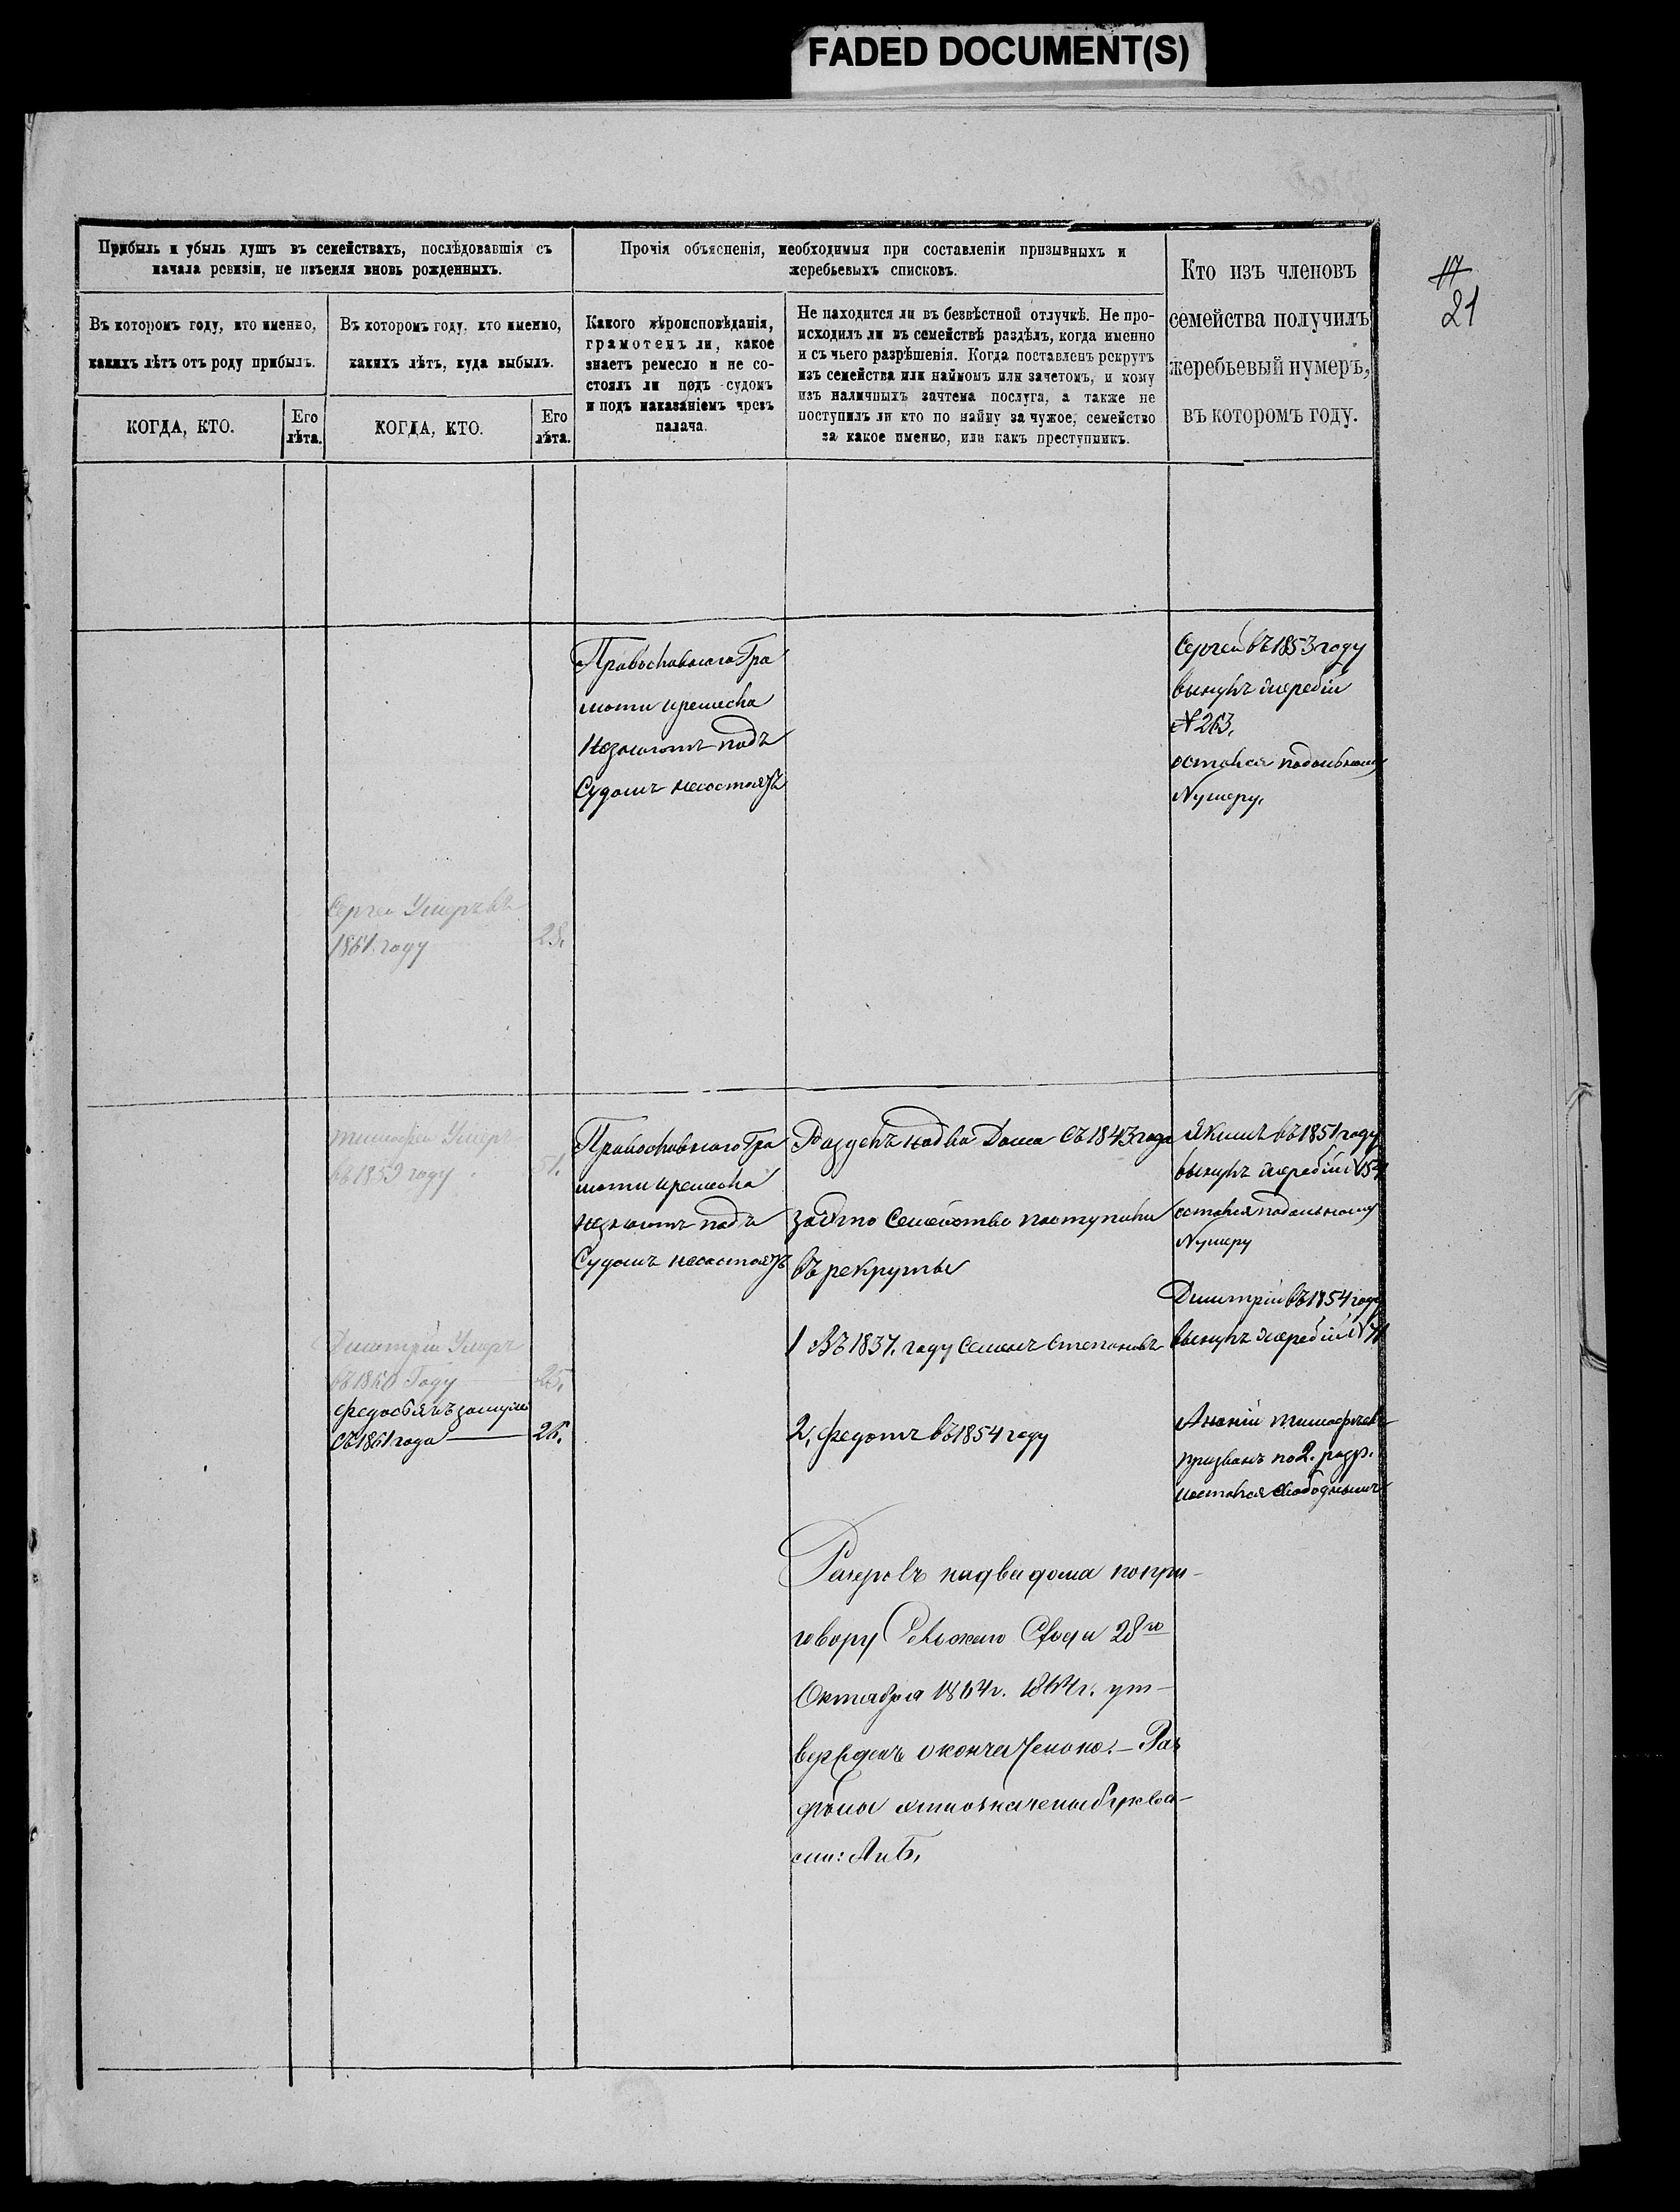 FADED DOCUMENT(S)
17
21
Прибыль и убыль душъ въ семействахъ, послѣдовавшія съ
начала ревизіи, не изъемля вновь рожденныхъ.
Прочія объясненія, необходимыя при составленіи призывныхъ и
жеребьевыхъ списковъ.
Кто изъ членовъ
семейства получилъ
жеребьевый нумеръ,
въ которомъ году.
Въ которомъ году, кто именно,
какихъ лѣтъ отъ роду прибылъ.
Въ которомъ году, кто именно,
какихъ лѣтъ, куда выбылъ.
Какого вѣроисповѣданія,
грамотенъ ли, какое
знаетъ ремесло и не со-
стоялъ ли подъ судомъ
и подъ наказаніемъ чрезъ
палача.
Не находится ли въ безвѣстной отлучкѣ. Не про-
исходилъ ли въ семействѣ раздѣлъ, когда именно
и съ чьего разрѣшенія. Когда поставленъ рекрутъ
изъ семейства или наймомъ или зачетомъ, и кому
изъ наличныхъ зачтена послуга, а также не
поступилъ ли кто по найму за чужое, семейство
за какое именно, или какъ преступникъ.
КОГДА, КТО.
Его
лѣта.
КОГДА, КТО.
Его
лѣта.
Православнаго Гра
моти иремесла
Незнаютъ подъ
Судомъ несостоятъ
Сергей въ 1853 году
вынулъ жеребій
№ 263.
остался подальному
Нумеру.
Сергей Умеръ въ
1861 году 28.
Тимофей Умеръ
въ 1859 году. 51.
Православнаго Гра
моти иремесла
незнаютъ подъ
Судомъ несостоятъ
Разделъ надва Дома съ 1843 года
заэто Семейство поступили
въ рекруты
1 Въ 1837. году Семенъ Степановъ
2, Федотъ въ 1854 году
Якимъ въ 1851 году
вынулъ жеребій № 154
остался подальному
Нумеру
Димитрій въ 1854 году
вынулъ жеребій № 71
Ананій Тимофеевъ
призванъ по 2. разр.
иостался свободнымъ
Дмитрій Умеръ
въ 1860 Году 25.
съ 1861 года 26.
надва дома попри-
говору Схода 28го
Октября 1864 г. 1864 г. ут-
вержденъ окончательно. — Раз
дѣлы буква-
ми: А и Б.